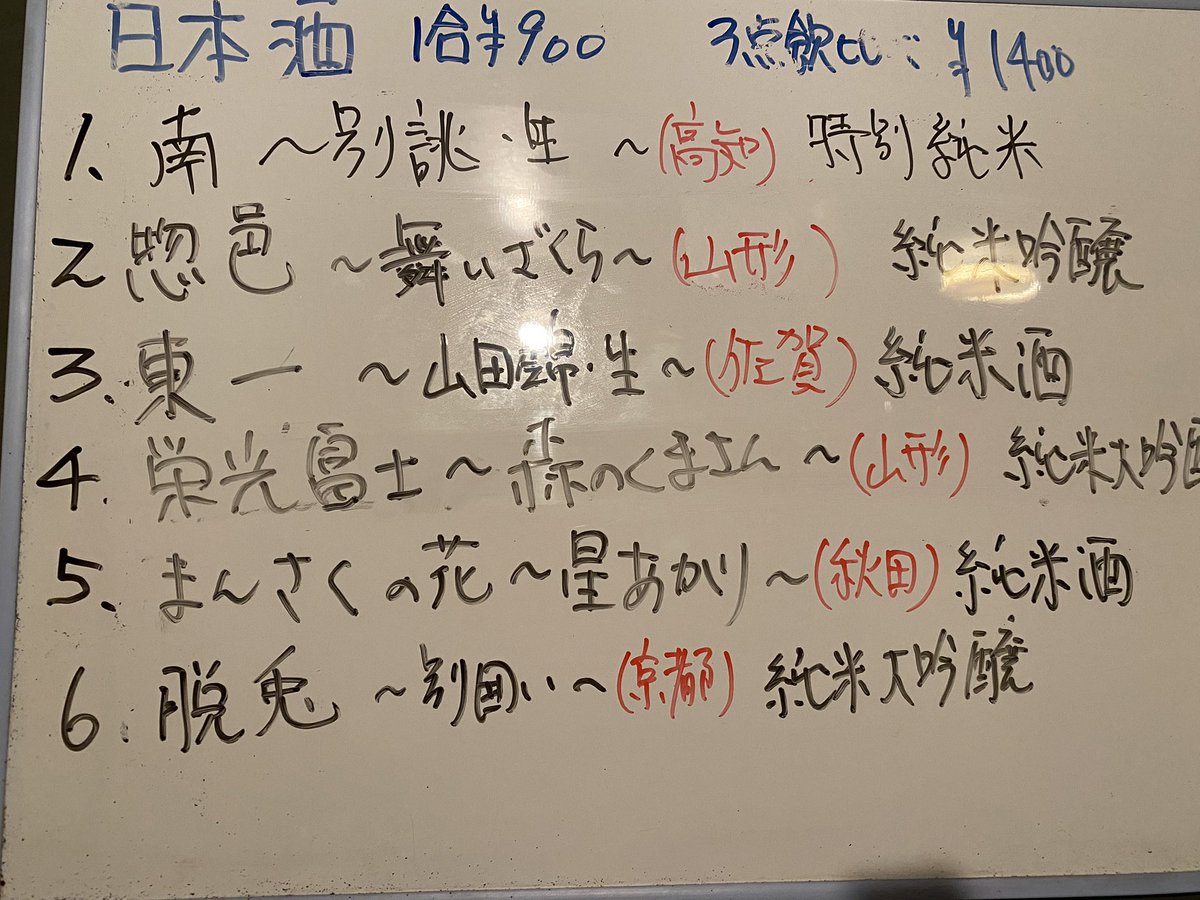 日本酒 1合¥900 3点飲比べ ¥1400
1. 南 〜別誂・生〜(高知) 特別純米
2 惣邑 〜舞いざくら〜(山形) 純米吟醸
3. 東一 〜山田錦・生〜(佐賀) 純米酒
4. 栄光冨士〜森のくまさん〜(山形) 純米大吟醸
5. まんさくの花〜星あかり〜(秋田) 純米酒
6. 脱兎 〜別囲い〜(京都) 純米大吟醸